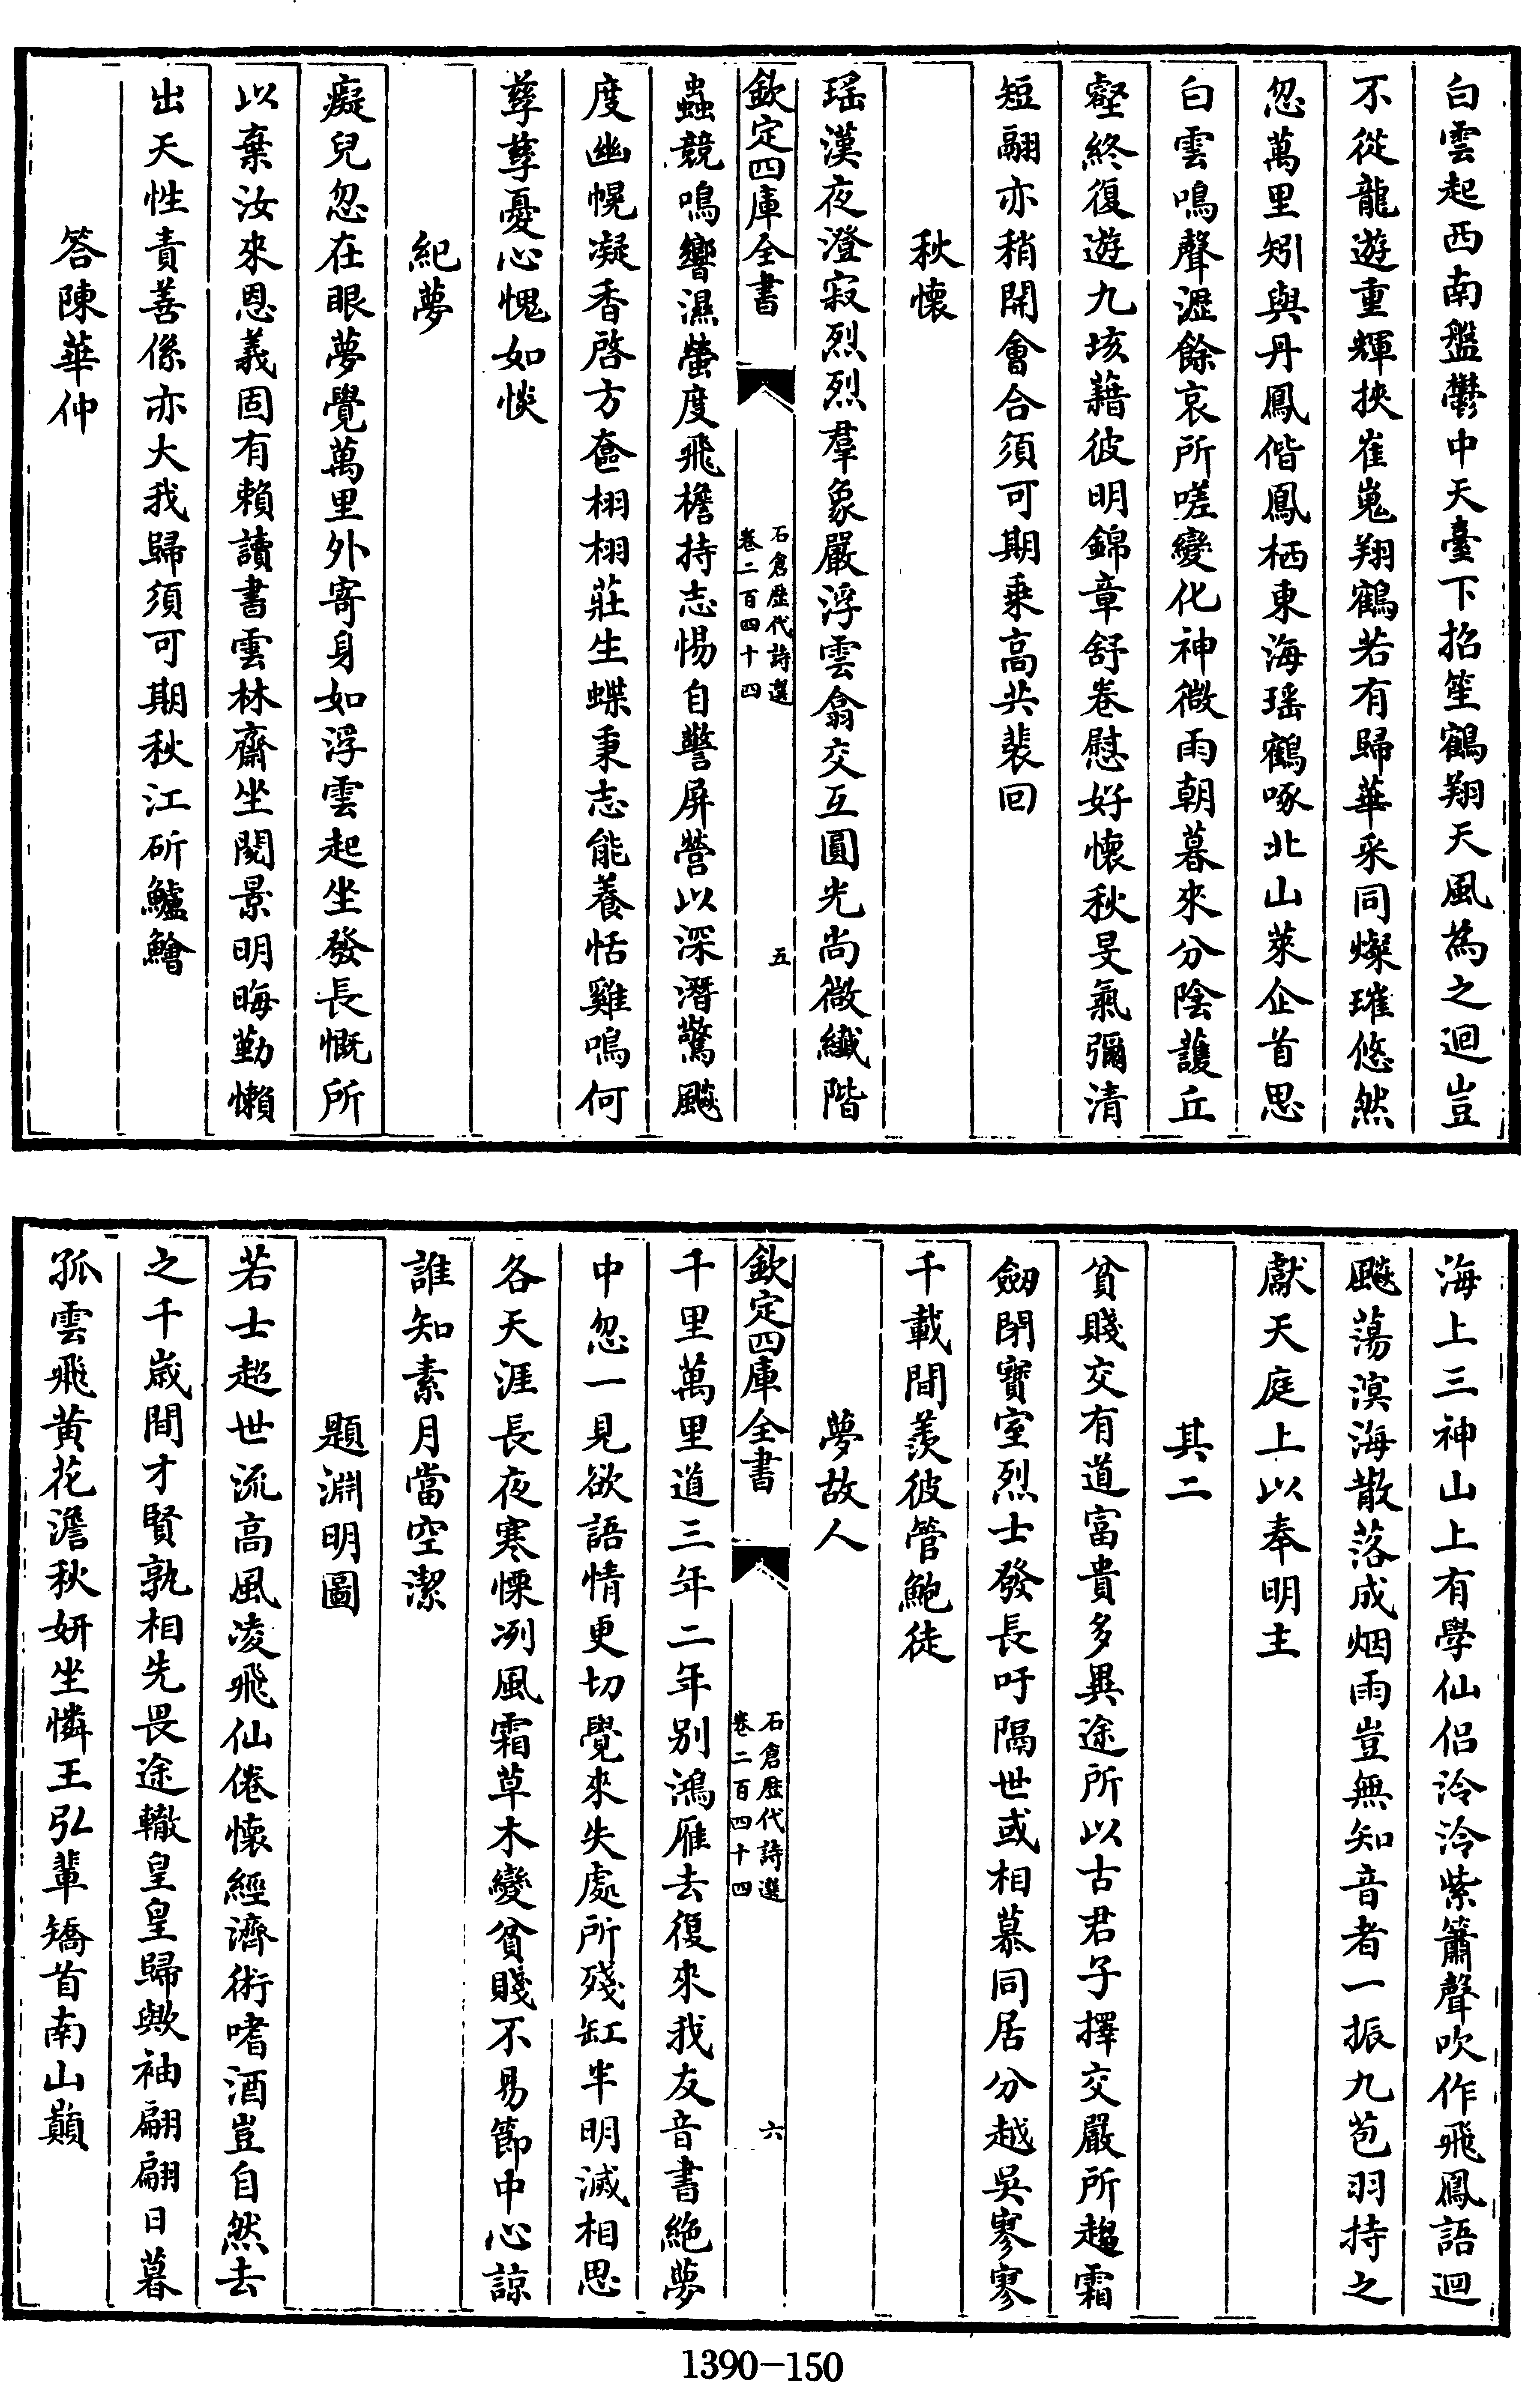 白雲起西南盤鬱中天臺下招笙鶴翔天風為之迴豈
不從龍遊重輝挾崔嵬翔鶴若有歸華采同燦璀悠然
忽萬里矧與丹鳳偕鳳栖東海瑶鶴啄北山萊企首思
白雲鳴聲瀝餘哀所嗟變化神微雨朝暮來分陰護丘
壑終復遊九垓藉彼明錦章舒卷慰好懷秋旻氣彌清
短翮亦稍開會合須可期乗高共裴回
秋懷
瑶漢夜澄寂烈烈羣象嚴浮雲翕交互圓光尚微纎階
欽定四庫全書
石倉歴代詩選
卷二百四十四
五
蟲競鳴響濕螢度飛檐持志惕自警屏營以深潛驚颷
度幽幌凝香啓方奩栩栩莊生蝶秉志能養恬雞鳴何
孳孳憂心愧如惔
紀夢
癡兒忽在眼夢覺萬里外寄身如浮雲起坐發長慨所
以棄汝來恩義固有賴讀書雲林齋坐閱景明晦勤懶
出天性責善係亦大我歸須可期秋江斫鱸鱠
答陳華仲
海上三神山上有學仙侣泠泠紫簫聲吹作飛鳳語迴
颷蕩溟海散落成烟雨豈無知音者一振九苞羽持之
獻天庭上以奉明主
其二
貧賤交有道富貴多異途所以古君子擇交嚴所趨霜
劒閉寳室烈士發長吁隔世或相慕同居分越吳寥寥
千載間羨彼管鮑徒
夢故人
千里萬里道三年二年别鴻雁去復來我友音書絶夢
欽定四庫全書
石倉歴代詩選
卷二百四十四
六
中忽一見欲語情更切覺來失處所殘缸半明滅相思
各天涯長夜寒慄冽風霜草木變貧賤不易節中心諒
誰知素月當空潔
題淵明圖
若士超世流高風凌飛仙倦懷經濟術嗜酒豈自然去
之千歳間才賢孰相先畏途轍皇皇歸歟袖翩翩日暮
孤雲飛黄花澹秋妍坐憐王弘輩矯首南山巔
1390-150